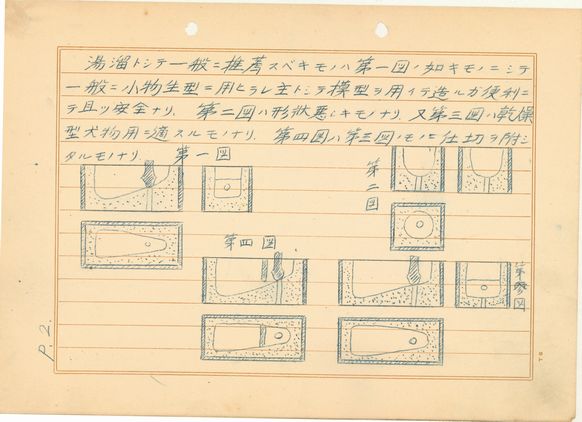 湯溜トシテ一般ニ推薦スベキモノハ第一図ノ如キモノニシテ
一般ニ小物生型ニ用ヒラレ主トシテ模型ヲ用イテ造ルガ便利ニ
テ且ツ安全ナリ、第二図ハ形状悪シキモノナリ、又第三図ハ乾燥
型大物用ニ適スルモノナリ、第四図ハ第三図ノモノニ仕切ヲ附シ
タルモノナリ、
第一図
第二図
第四図
第参図
P.2.